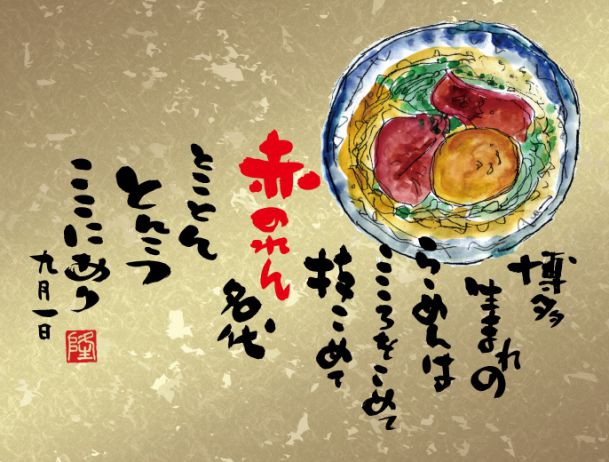 博多
生まれの
らーめんは
こころをこめて
技こめて
名代
赤のれん
とことん
とんこつ
ここにあり
九月一日
隆